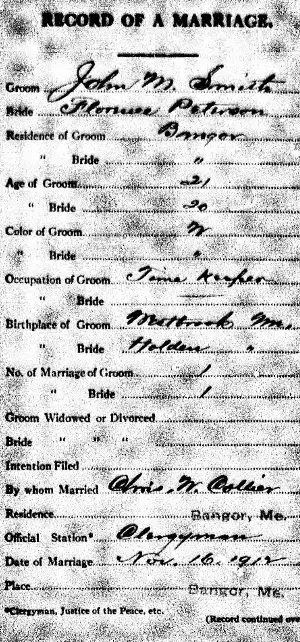 RECORD OF A MARRIAGE.
Groom John M. Smith
Bride Florence Peterson
Residence of Groom Bangor
" Bride "
Age of Groom 21
" Bride 20
Color of Groom W
" Bride "
Occupation of Groom Time Keeper
" Bride
Birthplace of Groom Westbrook Me.
" Bride Holden "
No. of Marriage of Groom 1
" Bride 1
Groom Widowed or Divorced
Bride " " "
Intention Filed
By whom Married W. Collier
Residence Bangor, Me.
Official Station* Clergyman
Date of Marriage Nov. 16. 1912
Place Bangor, Me.
*Clergyman, Justice of the Peace, etc.
(Record continued ove